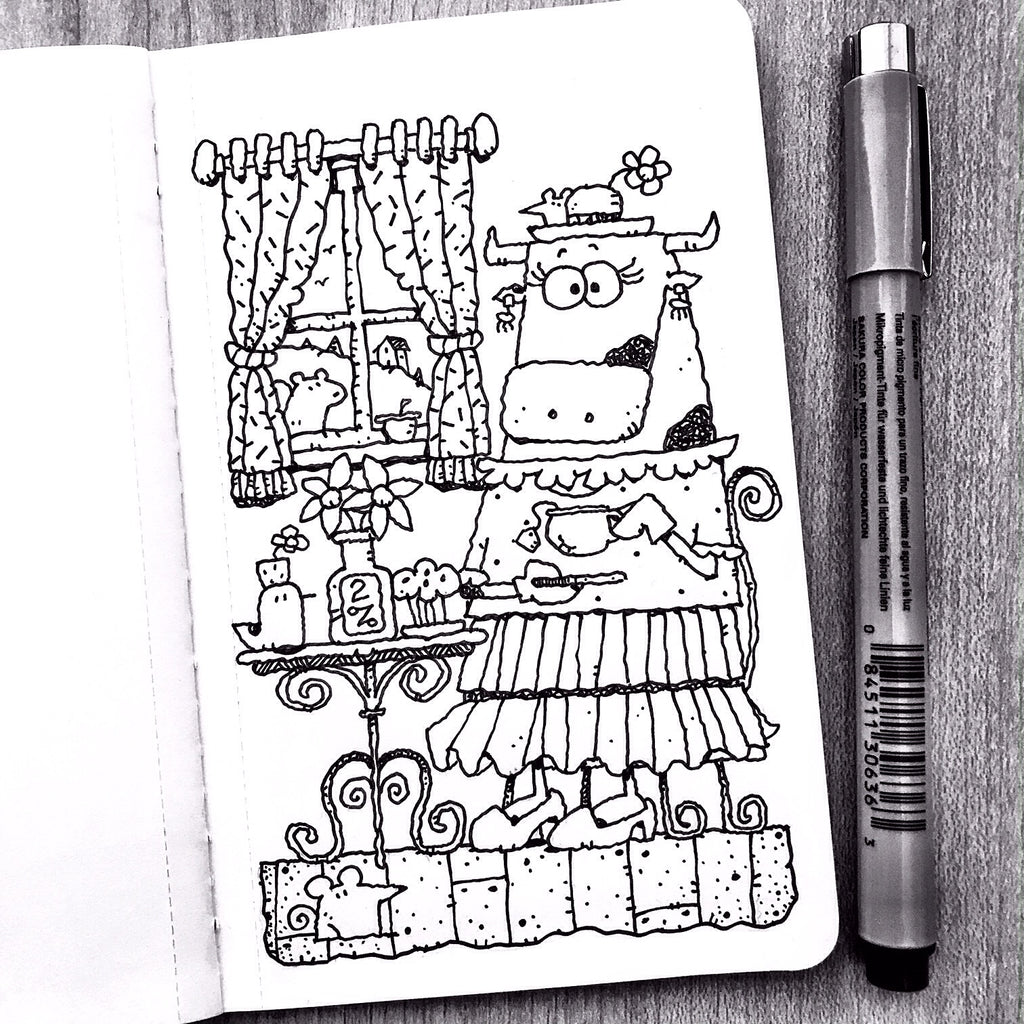 2
%
Tinta de micro pigmento para un trazo fino, resistente al agua y a la luz
Mikropigment-Tinte für wasserfeste und lichtechte feine Linien
SAKURA COLOR PRODUCTS CORPORATION
0 84511 30636 3